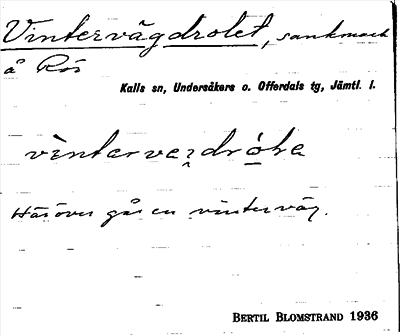 Vintervägdrolet, sankmark
å Rös
Kalls sn, Undersåkers o. Offerdals tg, Jämtl. l.
vìntervei̯drò̱ta
Häröver går en vinterväg.
BERTIL BLOMSTRAND 1936